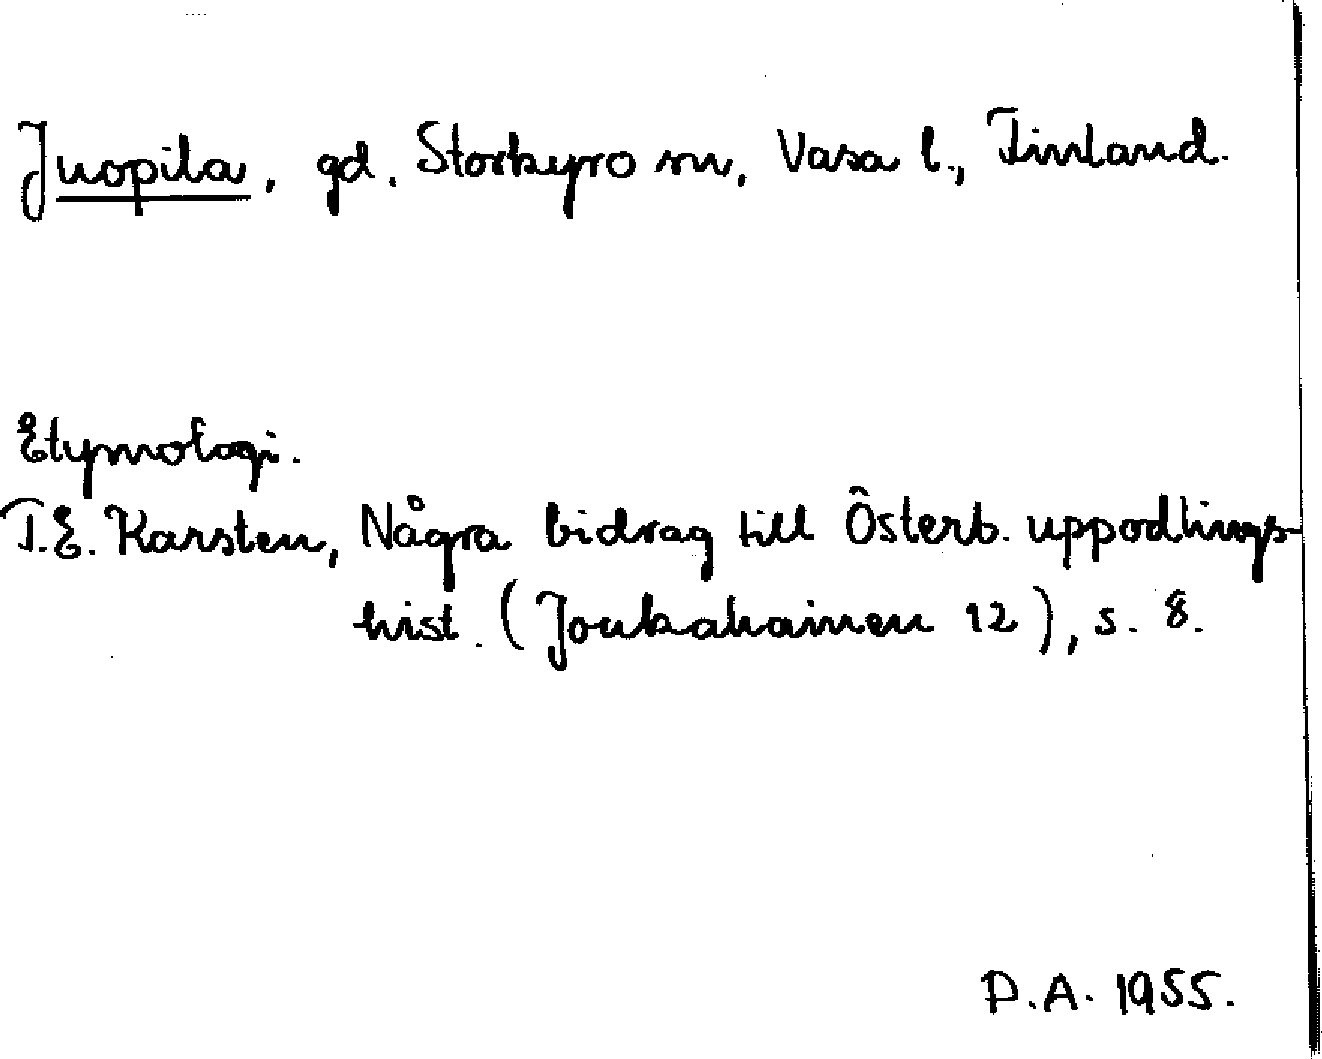 Juopila, gd. Storkyro sn, Vasa l., Finland.
Etymologi.
T.E. Karsten, Några bidrag till Österb. uppodlings-
hist. (Joukahainen 12), s. 8.
P.A. 1955.